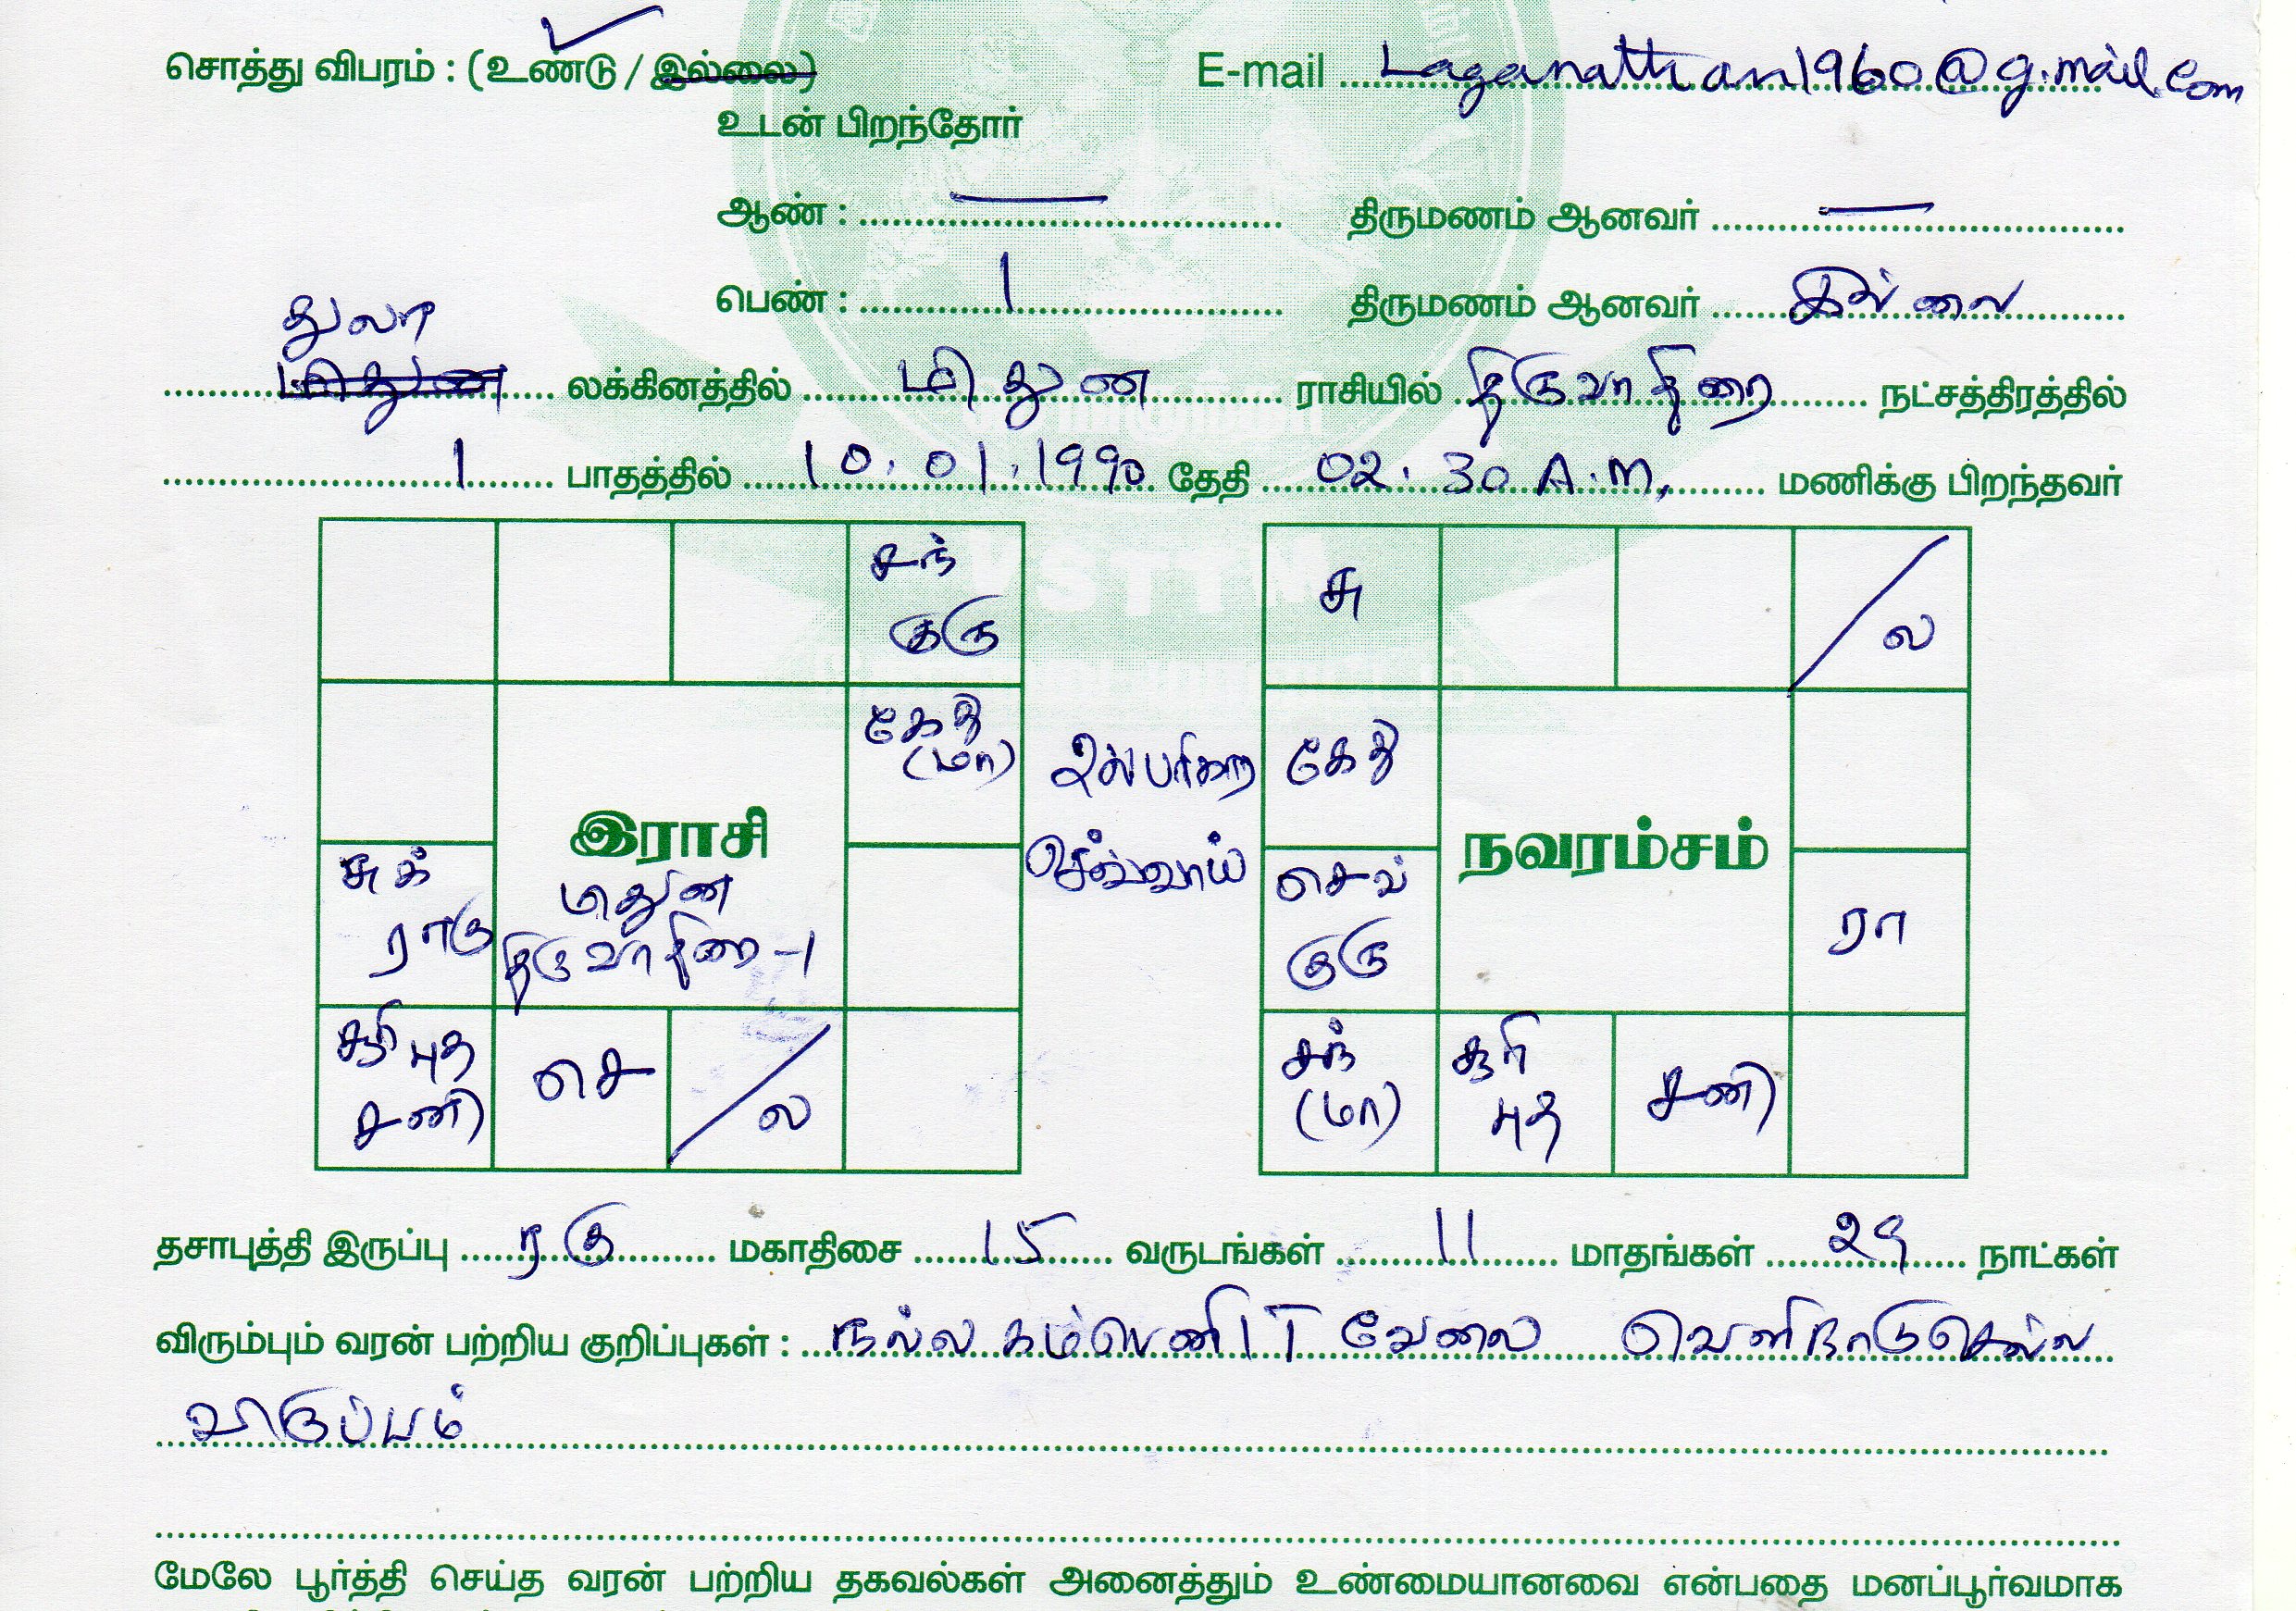 சொத்து விபரம் : (உண்டு / இல்லை)
E-mail Laganathan1960@g.mail.com
உடன் பிறந்தோர்
ஆண் : — திருமணம் ஆனவர் —
பெண் : 1 திருமணம் ஆனவர் இல்லை
துலா
மிதுன லக்கினத்தில் மிதுன ராசியில் திருவாதிரை நட்சத்திரத்தில்
1 பாதத்தில் 10.01.1990 தேதி 02.30 A.M, மணிக்கு பிறந்தவர்
VSTTM
சந்
குரு
கேது
(மா)
இராசி
மிதுன
திருவாதிரை -1
சுக்
ராகு
சூரி புத
சனி
செ
/ ல
செவ்வாய்
சு
/ ல
கேது
நவரம்சம்
செவ்
குரு
ரா
சந்
(மா)
சூரி
புத
சனி
தசாபுத்தி இருப்பு ரகு மகாதிசை 15 வருடங்கள் 11 மாதங்கள் 29 நாட்கள்
விரும்பும் வரன் பற்றிய குறிப்புகள் : நல்ல கம்பெனி IT வேலை வெளிநாடு செல்ல
விருப்பம்
மேலே பூர்த்தி செய்த வரன் பற்றிய தகவல்கள் அனைத்தும் உண்மையானவை என்பதை மனப்பூர்வமாக